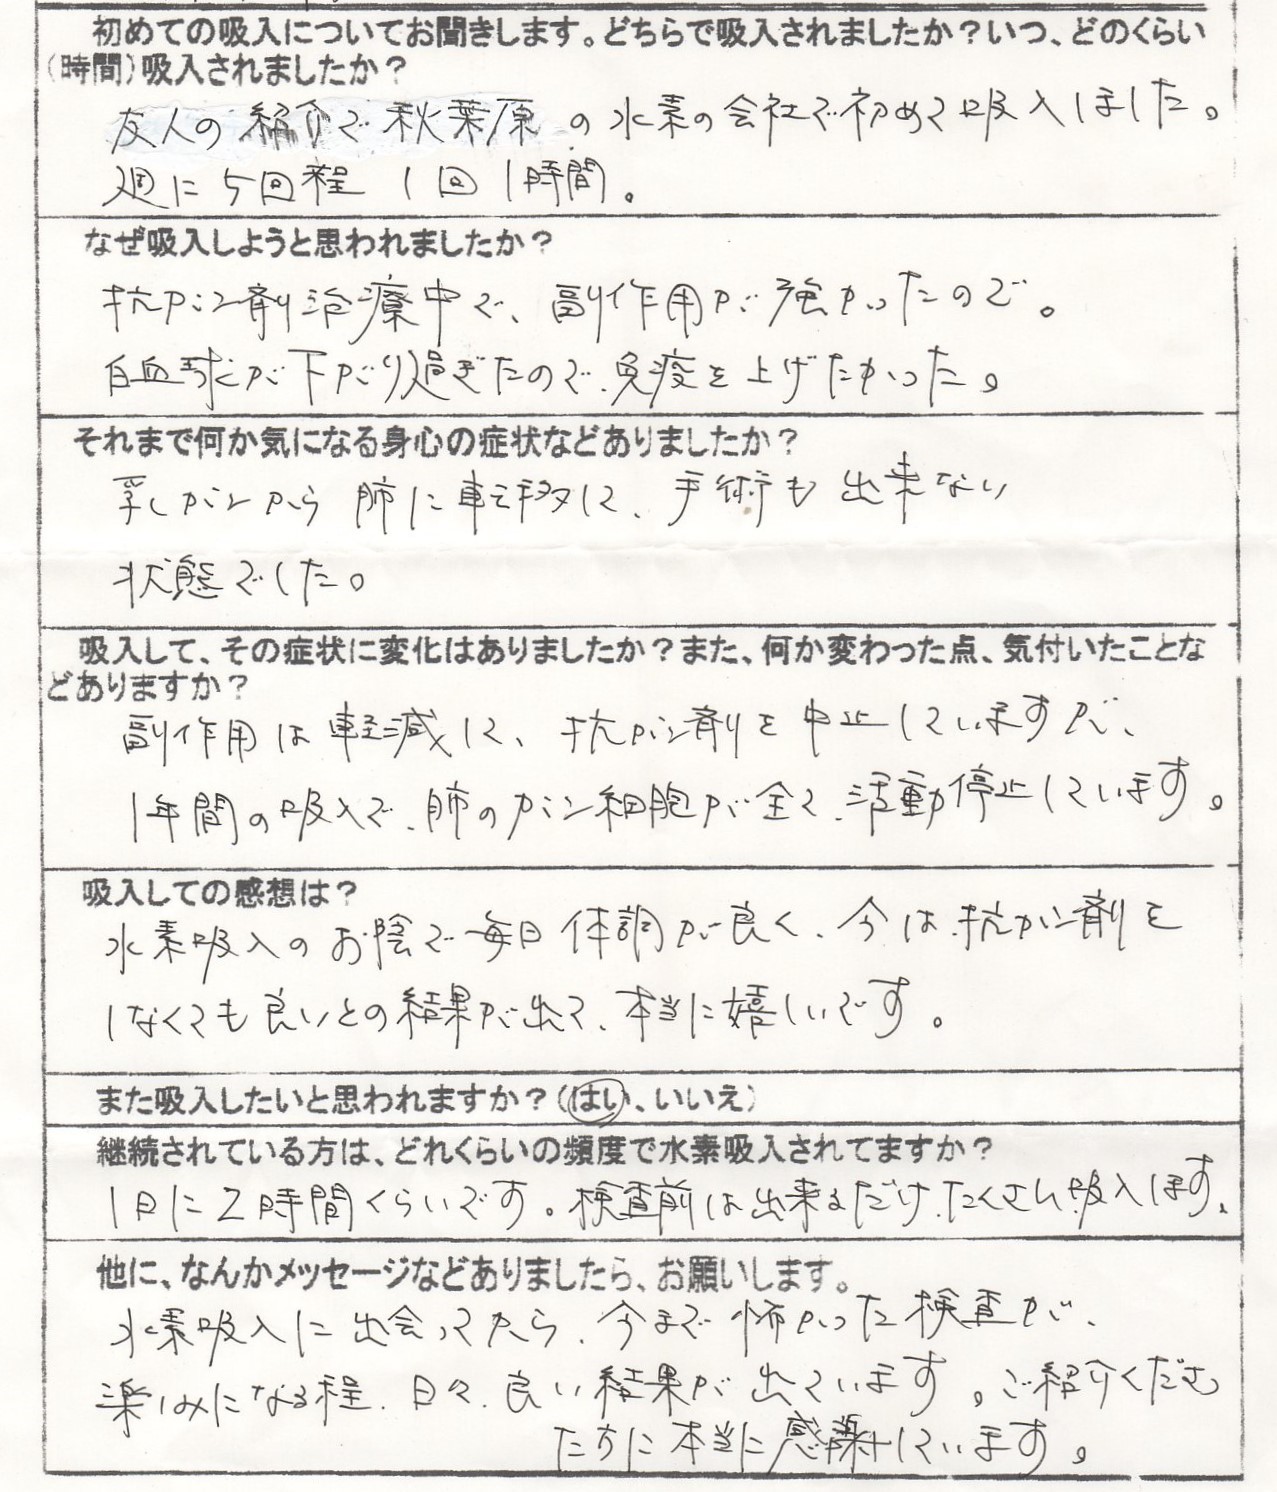 初めての吸入についてお聞きします。どちらで吸入されましたか？いつ、どのくらい
(時間)吸入されましたか？
友人の紹介で秋葉原の水素の会社で初めて吸入しました。
週に5回程 1回1時間。
なぜ吸入しようと思われましたか？
抗ガン剤治療中で、副作用が強かったので。
白血球が下がり過ぎたので、免疫を上げたかった。
それまで何か気になる身心の症状などありましたか？
乳しガンから肺に転移して、手術も出来ない
状態でした。
吸入して、その症状に変化はありましたか？また、何か変わった点、気付いたことな
どありますか？
副作用は軽減して、抗ガン剤を中止していますが、
1年間の吸入で、肺のガン細胞が全て、活動停止しています。
吸入しての感想は？
水素吸入のお陰で毎日体調が良く、今は抗ガン剤を
しなくても良いとの結果が出て、本当に嬉しいです。
また吸入したいと思われますか？(はい、いいえ)
継続されている方は、どれくらいの頻度で水素吸入されてますか？
1日に2時間くらいです。検査前は出来るだけ、たくさん吸入します。
他に、なんかメッセージなどありましたら、お願いします。
水素吸入に出会ってから、今まで怖かった検査が、
楽しみになる程、日々、良い結果が出ています。ご紹介くださ
たちに本当に感謝しています。